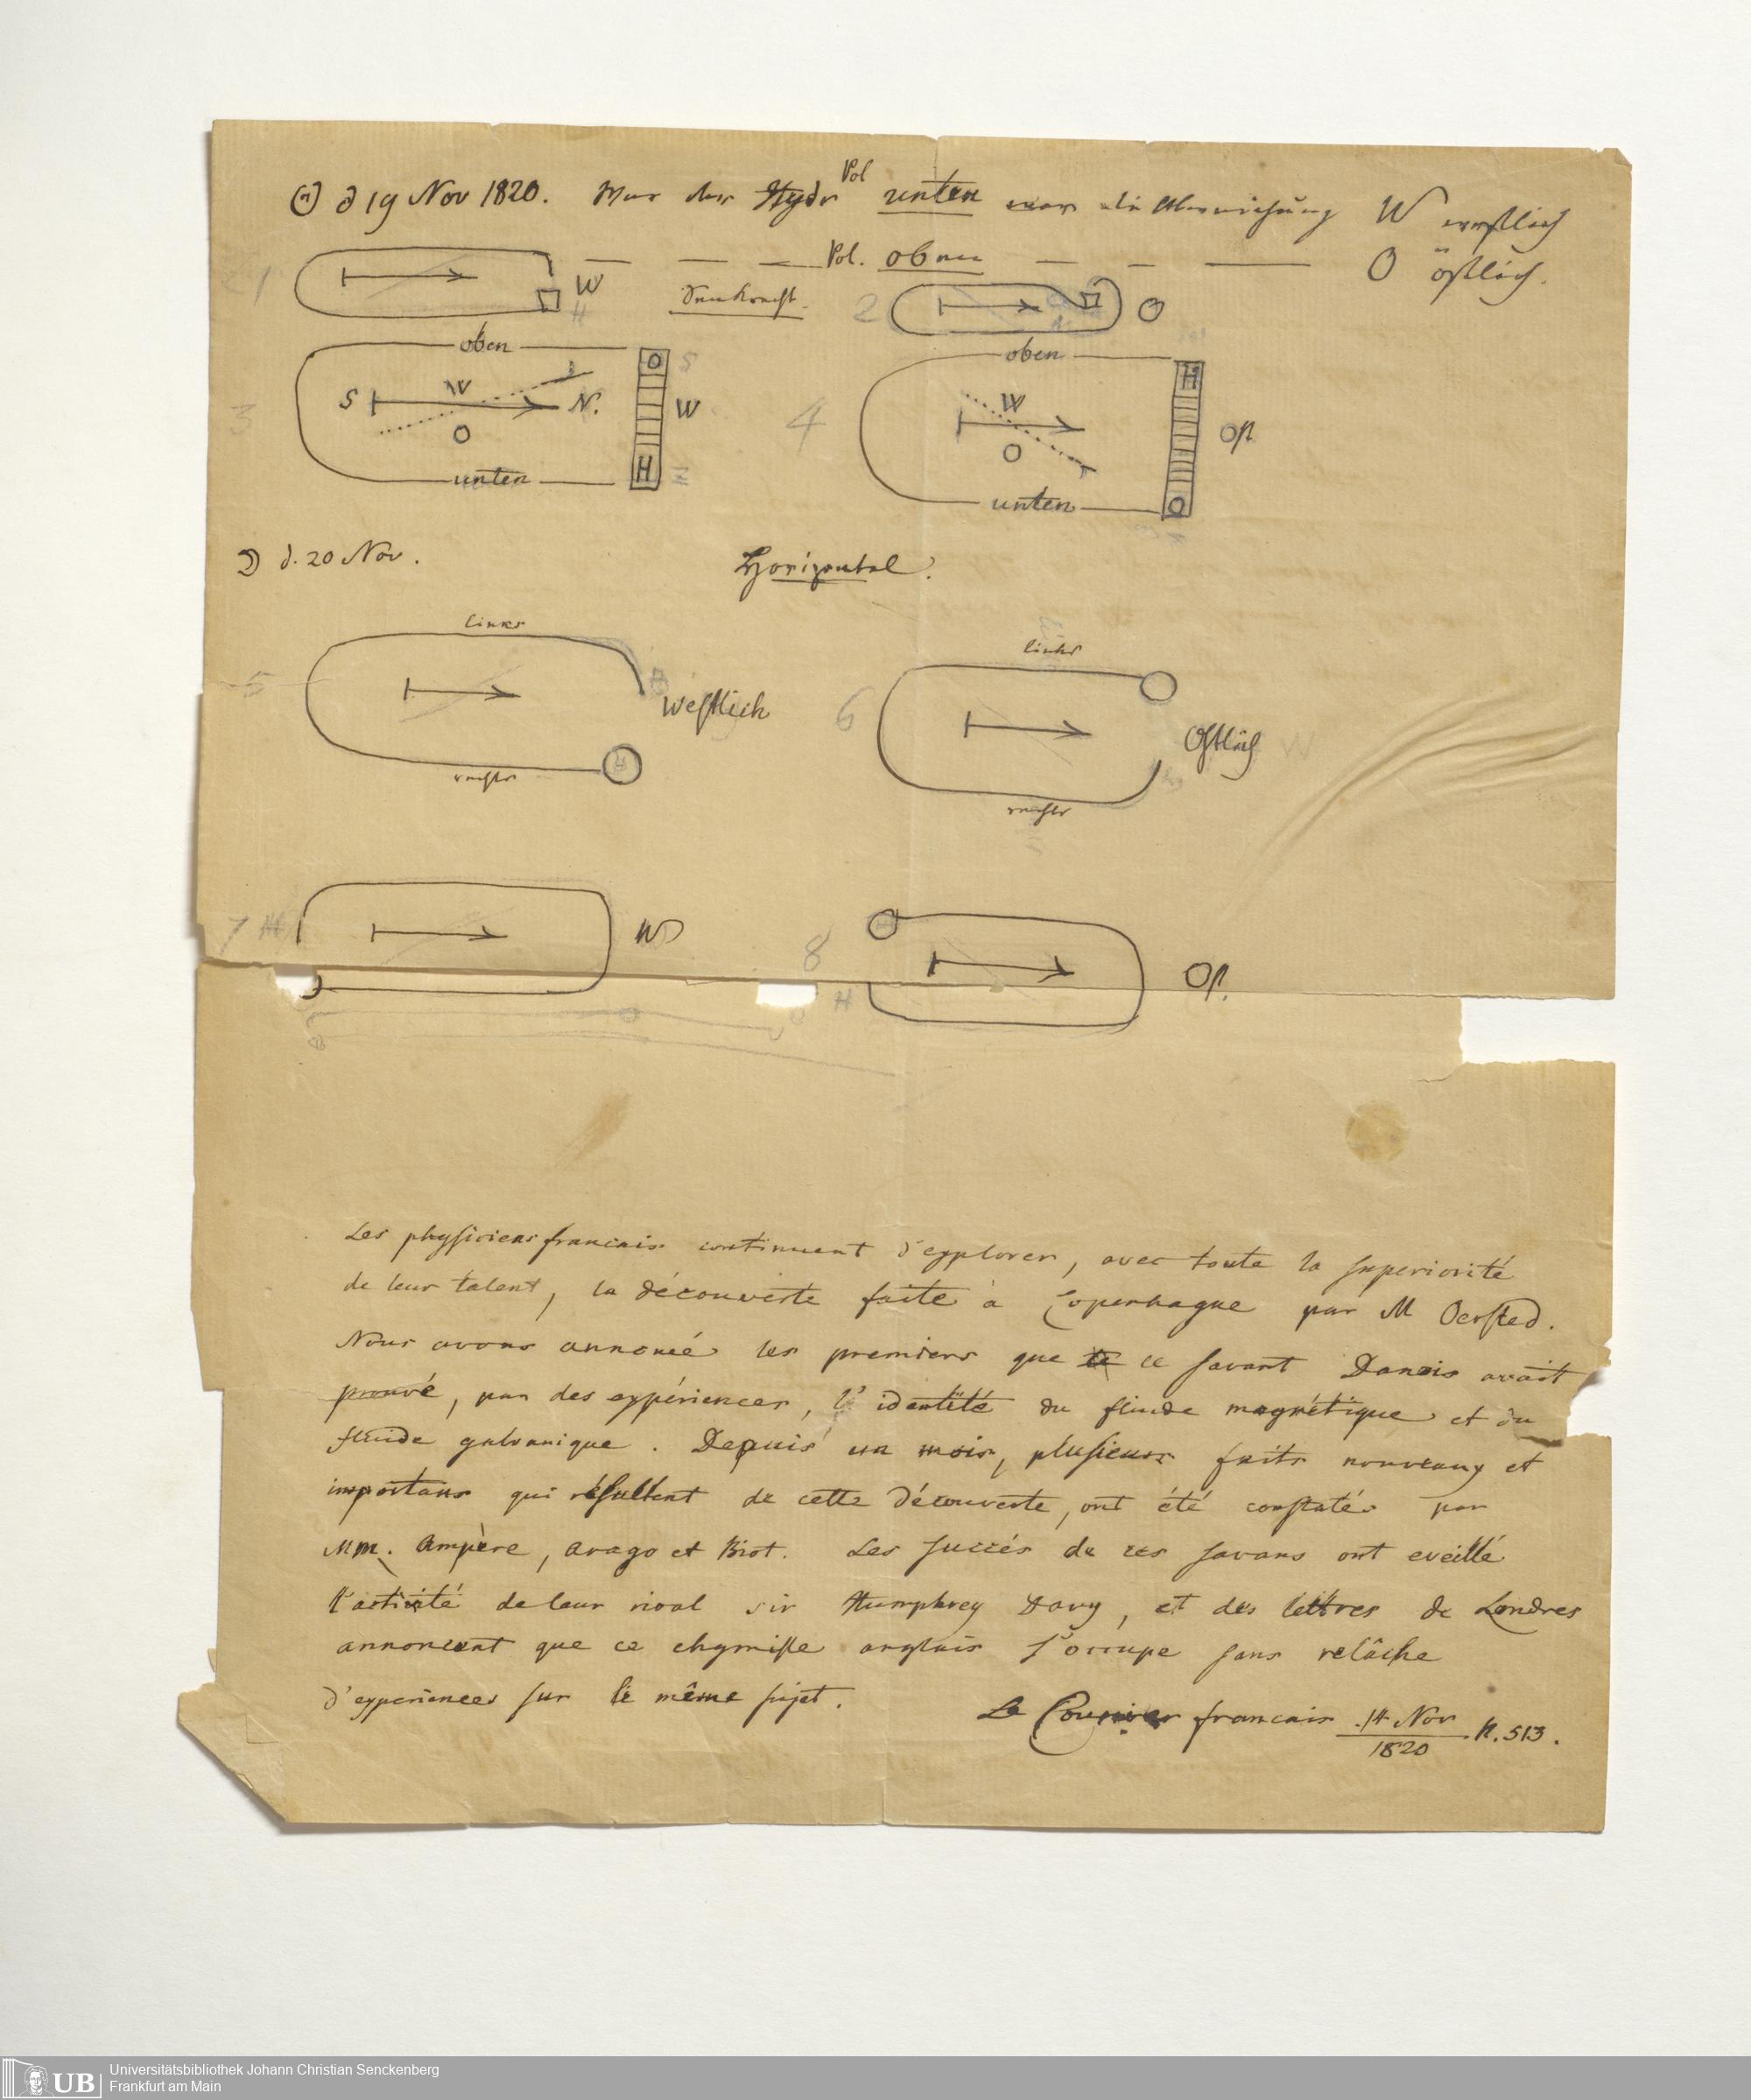 d 19 Nov 1820. War der Hydr Pol unten war die Abweichung W westlich
Pol. oben O östlich.
1 W Senkrecht. 2 O
H
oben oben
3 S W N. O O S W H N 4 W O H Ost O
unten unten
2) d. 20 Nov. Horizontal.
links links
5 Westlich 6 Ostlich W
rechts rechts
7 H W 8 H Ost.
Les physiciens francais continuent d'explorer, avec toute la superiorité
de leur talent, la découverte faite à Copenhague par M Oersted.
Nous avons annoncé les premiers que le ce savant Danois avait
prouvé, par des expériences, l'identité du fluide magnétique et du
fluide galvanique. Depuis un mois, plusieurs faits nouveaux et
importans qui résultent de cette découverte, ont été constatés par
MM. Ampère, Arago et Biot. Les succés de ces savans ont eveillé
l'activité de leur rival sir Humphrey Davy, et des lettres de Londres
annoncent que ce chymiste anglais s'occupe sans relâche
d'experiences sur le même sujet. Le Courier francais 14 Nov 1820 N. 513.
UB Universitätsbibliothek Johann Christian Senckenberg
Frankfurt am Main